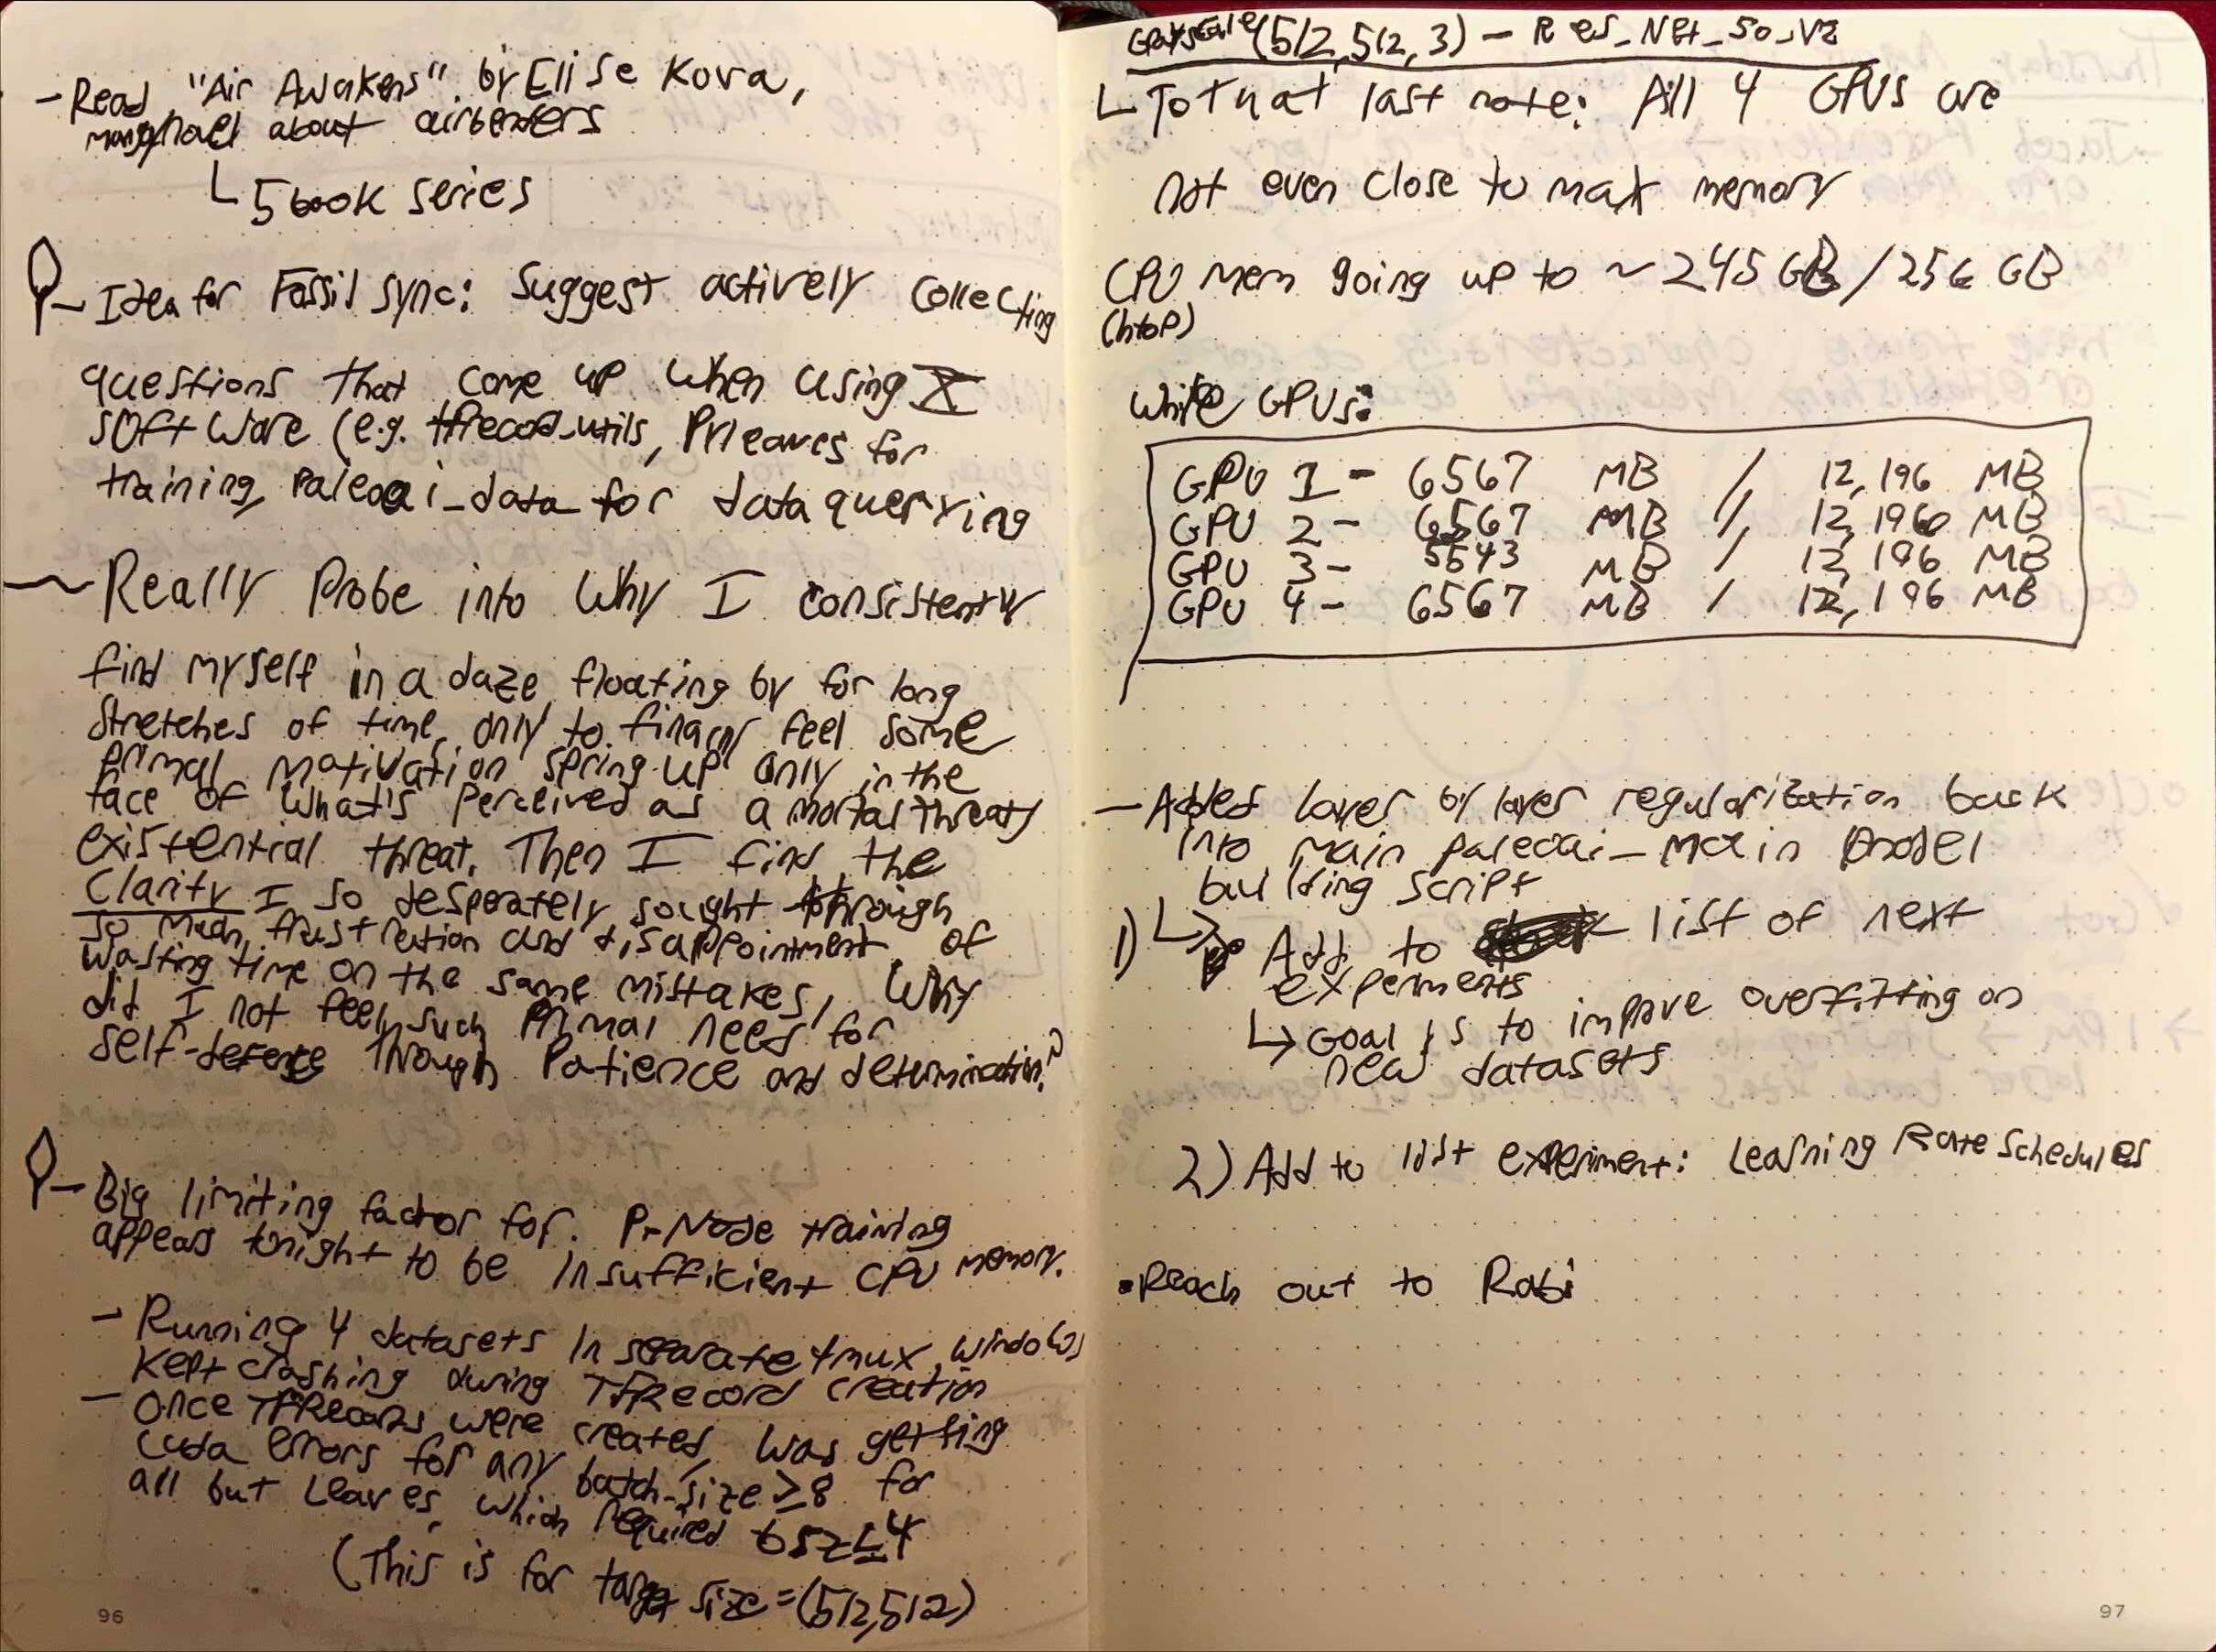 - Read "Air Awakens" by Elise Kova,
novel about airbenders
└ 5 book series
- Idea for Fossil Sync: Suggest actively collecting
questions that come up when using X
software (e.g. tfrecord_utils, Pyleaves for
training, paleoai_data for data querying
~ Really Probe into Why I consistently
find myself in a daze, floating by for long
stretches of time, only to finally feel some
primal motivation spring up only in the
face of what's perceived as a mortal threat/
existential threat. Then I find the
Clarity I so desperately sought through
so much frustration and disappointment of
wasting time on the same mistakes, Why
did I not feel such primal need for
self-defense through Patience and determination?
- Big limiting factor for P-Node training
appears tonight to be insufficient CPU memory.
- Running 4 datasets in separate tmux windows
kept crashing during TFRecord creation
- Once TFRecords were created, was getting
cuda errors for any batch-size ≥ 8 for
all but Leaves, which required bsz ≤ 4
(This is for target size = (512,512)
96
Grayscale (512, 512, 3) - Res_Net_50_V2
└ To that last note: All 4 GPUs are
not even close to max memory
CPU mem going up to ~ 245 GB / 256 GB
(htop)
While GPUs:
GPU 1 - 6567 MB / 12,196 MB
GPU 2 - 6567 MB / 12,196 MB
GPU 3 - 5543 MB / 12,196 MB
GPU 4 - 6567 MB / 12,196 MB
- Added layer by layer regularization back
into main paleoai_main model
building script
1) ↳ Add to list of next
experiments
↳ Goal is to improve overfitting on
new datasets
2) Add to list experiment: Learning Rate Schedules
• Reach out to Rabi
97